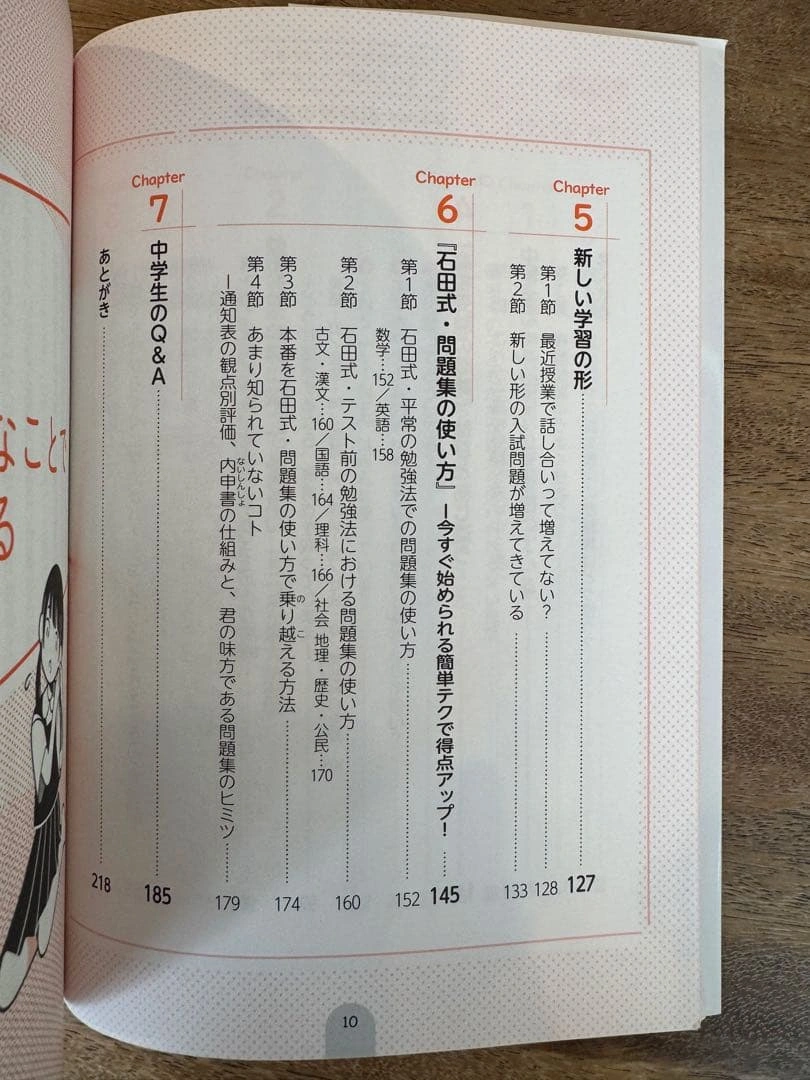 Chapter
5
新しい学習の形……127
第1節 最近授業で話し合いって増えてない?……128
第2節 新しい形の入試問題が増えてきている……133
Chapter
6
『石田式・問題集の使い方』 ー今すぐ始められる簡単テクで得点アップ!……145
第1節 石田式・平常の勉強法での問題集の使い方……152
数学…152/英語…158
第2節 石田式・テスト前の勉強法における問題集の使い方……160
古文・漢文…160/国語…164/理科…166/社会 地理・歴史・公民…170
第3節 本番を石田式・問題集の使い方で乗り越える方法……174
の こ
第4節 あまり知られていないコト
ー通知表の観点別評価、内申書の仕組みと、君の味方である問題集のヒミツ……179
ないしんしょ
Chapter
7
中学生のQ&A……185
あとがき……218
10
なことで
る